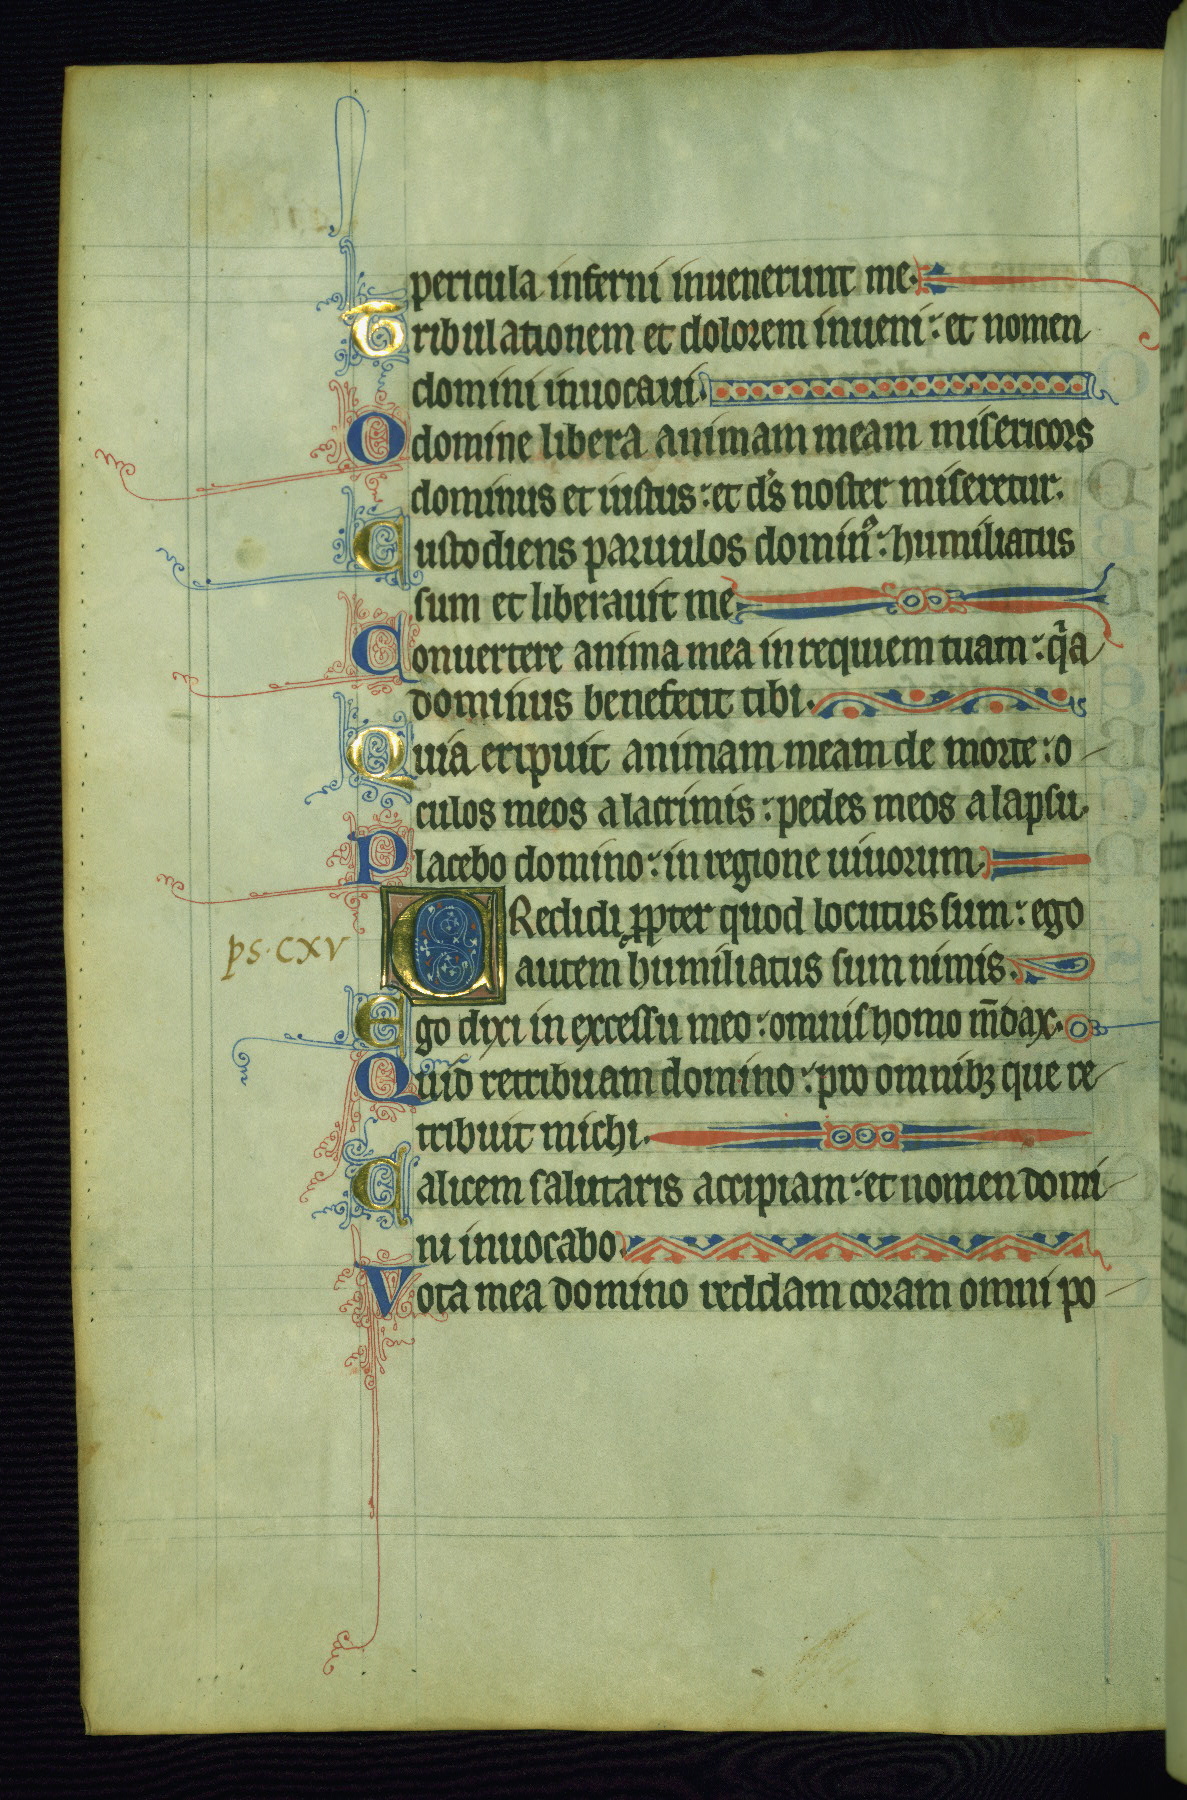 pericula inferni inuenerunt me.
Tribulationem et dolorem inueni : et nomen
domini inuocaui.
O domine libera animam meam misericors
dominus et iustus : et ds noster miseretur.
Custodiens paruulos dominꝰ : humiliatus
sum et liberauit me
Conuertere anima mea in requiem tuam : qͥa
dominus benefecit tibi.
Quia eripuit animam meam de morte : o
culos meos a lacrimis : pedes meos a lapsu.
Placebo domino : in regione uiuorum.
CRedidi ꝓpter quod locutus sum : ego
ps. CXV
autem humiliatus sum nimis.
Ego dixi in excessu meo : omnis homo m̄dax.
Quid retribuam domino : pro omnibꝫ que re
tribuit michi.
Calicem salutaris accipiam : et nomen domi
ni inuocabo.
Vota mea domino reddam coram omni po